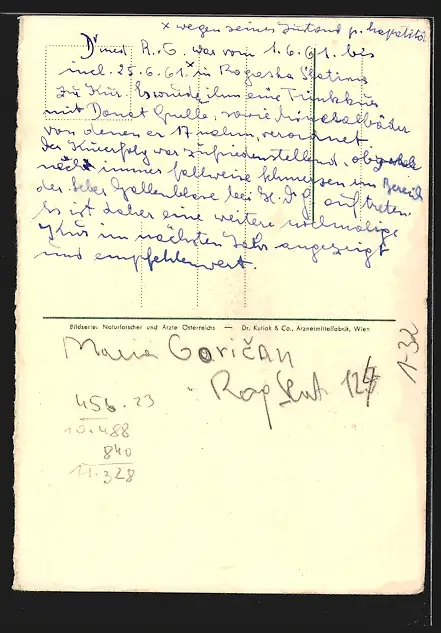 x wegen seines Zustand p. hepatitid.
Dr med. R. G. war vom 1.6.61. bis
incl. 25.6.61x in Rogaska Slatina
zur Kur. Es wurde ihm eine Trinkkur
mit Donat Quelle, sowie Mineralbäder
von denen er 17 nahm, verordnet
Der Kurerfolg war zufriedenstellend, obzwar
noch immer fallweise Schmerzen im Bereich
der Leber Gallenblase bei auftreten.
Es ist daher eine weitere nochmalige
Kur im nächsten Jahr angezeigt
und empfehlenswert.
Bildserie: Naturforscher und Ärzte Österreichs — Dr. Kutiak & Co., Arzneimittelfabrik, Wien
Maria Goričan
Rog Slat 124
1-32
456.23
10.488
840
11.328